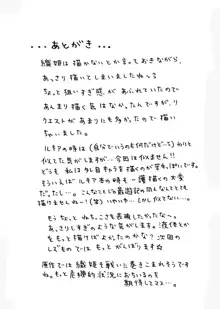 ...あとがき...
織姫は描かないとか言っておきながら、
あっさり描いてしまいましたね〜。
ちょっと狙いすぎ感があふれていたので
あんまり描く気はなかったんですが、リ
クエストがあまりにも多かったので描い
ちゃいました。
ルキアの時は(自分でいうのも何だけど…)わりと
似てた気がしますが…今回は似ません!!
どうも私はタレ目キャラを描くのが苦手っぽいです。
そういえばルキア本の時も一護描くの大変
だったし…。こんなじゃ最遊記の同人なんてとても
描けませんね…!(笑)いやいや…しかしでも…。
もうちょっとねちっこさを表現したかったな〜。
あっさりしすぎのような気がします。液体とか
をもっと描けばよかったのかな?次回の
レズものではもっとがんばります☆
原作では織姫も戦いに巻きこまれそうですね。
もっと危機的状況におちいるのを
期待してマス…。